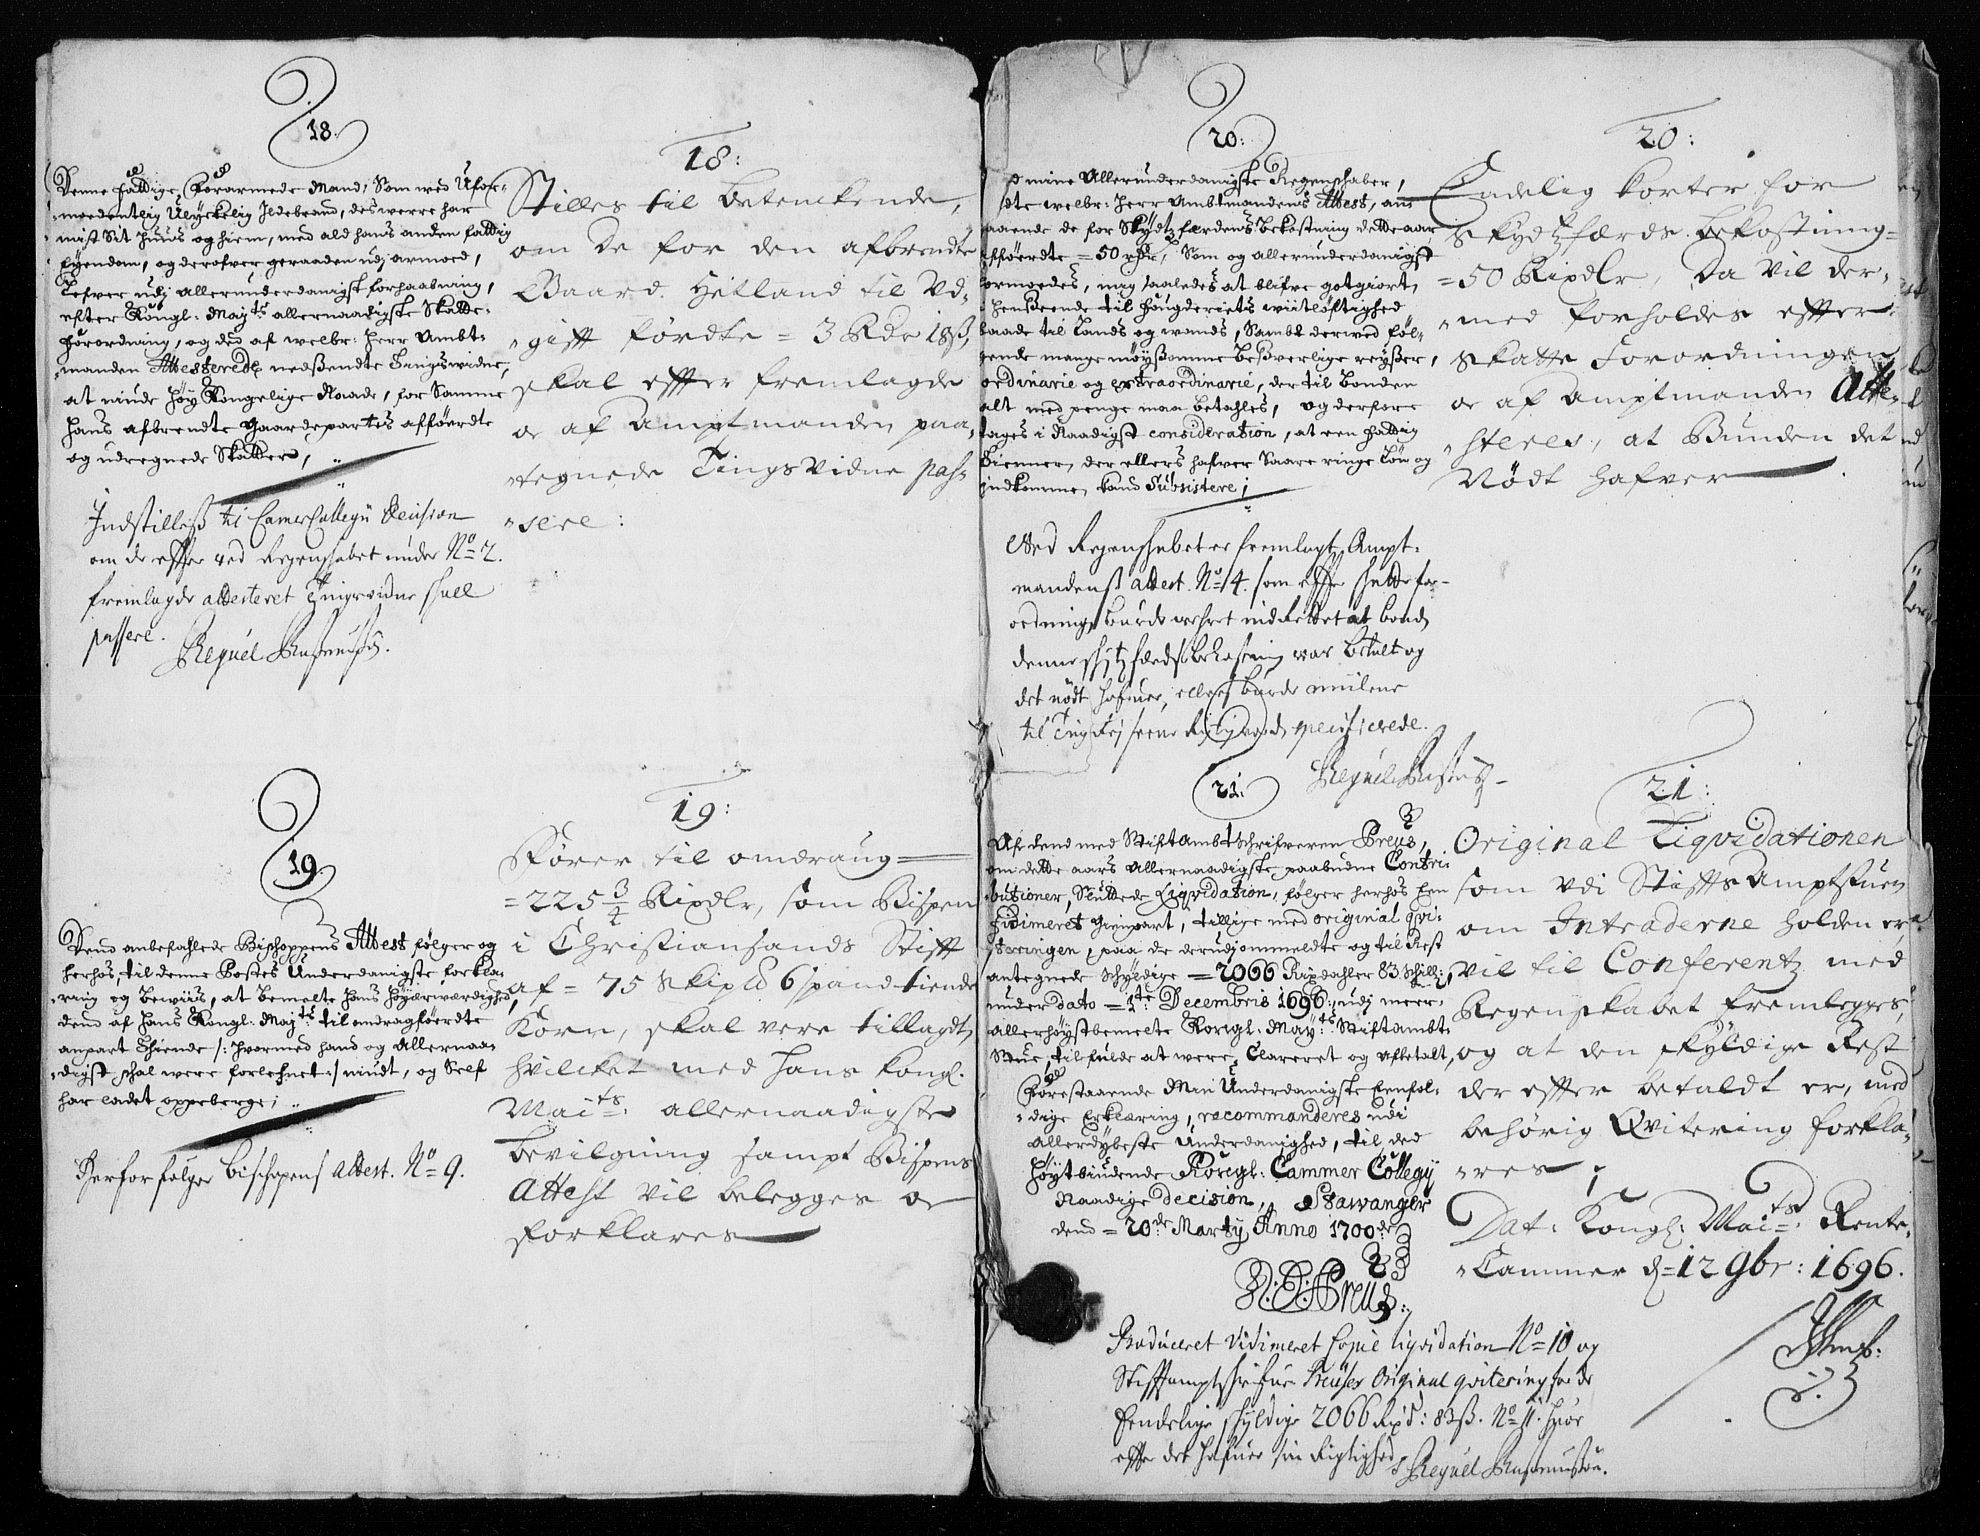 18.
Denne fattige, Forarmede Mand, Som wed Ufor-
moedentlig Ulyckelig Ildebrand, des werre har
mist Sit huus og hiem, med ald hans anden fattig
Eyendom, og derofver geraaden udj armoed,
Lefver udj allerunderdanigst forhaabning,
efter Kongl: Mayts allernaadigste Skatte-
Forordning, og ded af welbr: Herr Ambt-
manden Attesterede nedsendte Tingswidne,
at niude Høy Kongelige Naade, for Samme
Hans afbrendte Gaardepartes afføerdte
og udregnede Skatter,
Indstilless til CamerCollegii Decision
om de effter ved Regenskabet under No 7.
fremlagde attesteret Tingsvidne skall
passere.
18:
Stilles til betenckende,
om De for den afbrendte
Gaard Hetland til Ud-
gift førdte = 3 Rdr 18ß,
skal effter fremlagde
oc af Amptmanden paa-
tegnede Tingsvidne pas-
sere:
19.
Dend anbefahlede Bischoppens Attest følger og
herhos, til denne Postes Underdanigste forkla-
ring og bewiis, at bemelte Hans Høyærværdighed,
dend af Hans Kongl: Mayts til omdragførdte
anpart Thiende /: hvormed hand og Allernaa-
digst schal were forlehnet :/ niudt, og Self
har ladet oppeberge;
Herfor følger bischopens attest. No 9.
19:
Fører til omdraug
= 225 3/4 Rixdlr, som Bispen
i Christiansands Stift
af = 75 Skip℔ 6 spand tiende
Korn, skal vere tillagdt,
hvilcket med Hans Kongl.
Maits: allernaadigste
bevilgning sampt Bispens
Attest vil belegges oc
forklares
20:
mine Allerunderdanigste Regenschaber,
welbr: Herr Ambtmandens Attest, an-
de for Skydtzfærdens Bekostning dette aar
afføerdte = 50 rdr, Som og allerunderdanigst
formoedes, mig saaledes at blifve gotgiort,
i henseende til Fougderiets wiitløftighed
baade til Lands og wands, Sambt derwed føl-
gende mange møysomme besverlige reyser,
ordinarie og extraordinarie, der til bonden
alt med penge maa betahles, og derfore
tages i Naadigst consideration, at een fattig
Tienner, der ellers hafver Saare ringe løn og
indkomme, kand Subsistere;
Ved Regenskabet er fremlagt Ampt-
mandens attest. No 14. som effter skattefor-
ordning burde wehret indrettet at bonden
denne skytzferds bekostning war betalt og
det nødt hafuer, ellers burde miilene
specificerede.
20:
Endelig korter for
Skydtzfærds bekostning
= 50 Rixdlr, Da vil der-
med forholdes effter
Skatte Forordningen
oc af Amptmanden Atte-
steres, at Bunden det
Nødt hafver
21:
Af dend med StiftAmbtschrifveren Preus,
om dette aars Allernaadigste paabudne Contri-
butioner, Sluttede Liqvidation, følger herhos Een
Vidimeret Gienpart, tillige med original qvi-
teringen, paa de derudjommeldte og til Rest
antegnede schyldige = 2066 Rixdahler 83 Schill:
under dato = 1te Decembris 1696, udj meer-
allerhøystbemelte Kongl: Mayts: Stiftambt-
Stue, til fulde at were, Clareret og afbetalt,
Forestaaende Min Underdanigste Eenfol-
dige Erklæring, recommanderes udi
allerdybeste Underdanighed, til ded
Høytbiudende Kongl: Cammer Collegij
Naadige decision, Stawanger
dend = 20de Martij Anno 1700
Produceret Vidimeret Copie liqvidation No = 10 og
Stifftamptskrifuer Preuses Original qvitering for de
Eendelige skyldige 2066 Rxd: 83ß. No 11. huor
effter det hafuer sin Rigtighed
21:
Original Liqvidationen
som Udi StifftsAmptstuen
om Intraderne holden er,
vil til Conferentz med
Regenskabet fremlegges,
og at den skyldige Rest
der effter betaldt er, med
behørig Qvitering forkla-
res;
Dat: Kongl: Maits: Rente-
Cammer d= 12 9br: 1696.